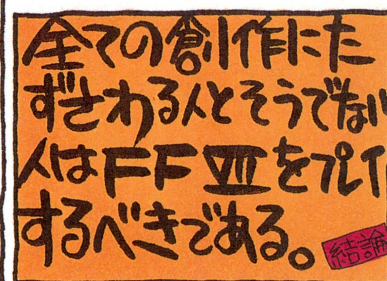 全ての創作にた
ずさわる人とそうでない
人はFFⅦをプレイ
するべきである。
結論